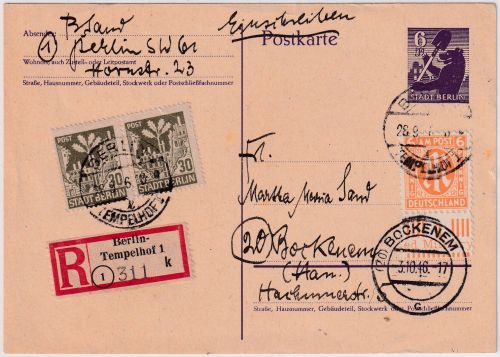 Absender:
B. Sand
1 Berlin SW 61
Wohnort, auch Zustell- oder Leitpostamt
Hornstr. 23
Straße, Hausnummer, Gebäudeteil, Stockwerk oder Postschließfachnummer
Einschreiben
Postkarte
6
STADT BERLIN
POST
30
STADT BERLIN
POST
30
STADT BERLIN
TEMPELHOF 1
28.9.
TEMPELHOF 1
AM POST 6
DEUTSCHLAND
R
Berlin-
Tempelhof 1
1 311 k
Fr.
Martha Maria Sand
20 Bockenem
(Han.)
Hachumerstr.
Straße, Hausnummer, Gebäudeteil, Stockwerk oder Postschließfachnummer
(20) BOCKENEM
3.10.46. 17
c